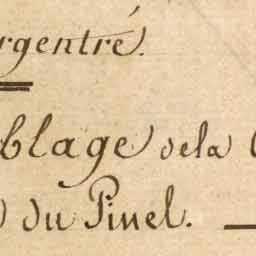 rgentré.
blage dela
du Pinel.